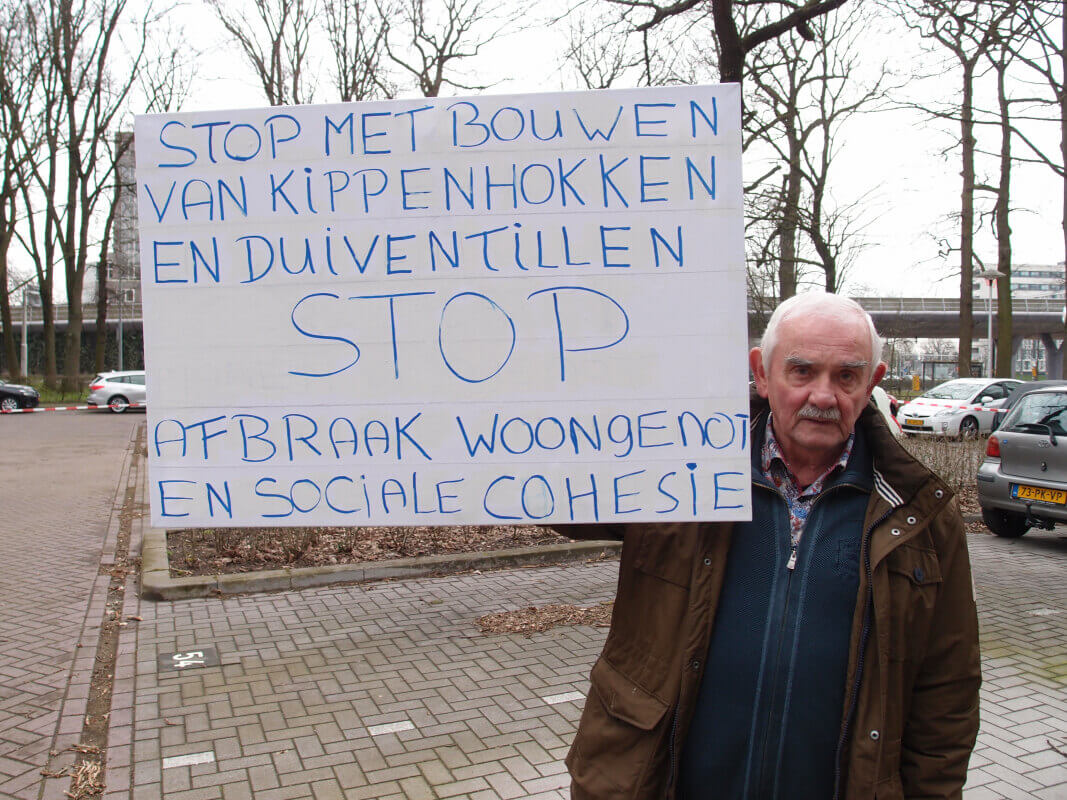 STOP MET BOUWEN
VAN KIPPENHOKKEN
EN DUIVENTILLEN
STOP
AFBRAAK WOONGENOT
EN SOCIALE COHESIE
54
73-PK-VP